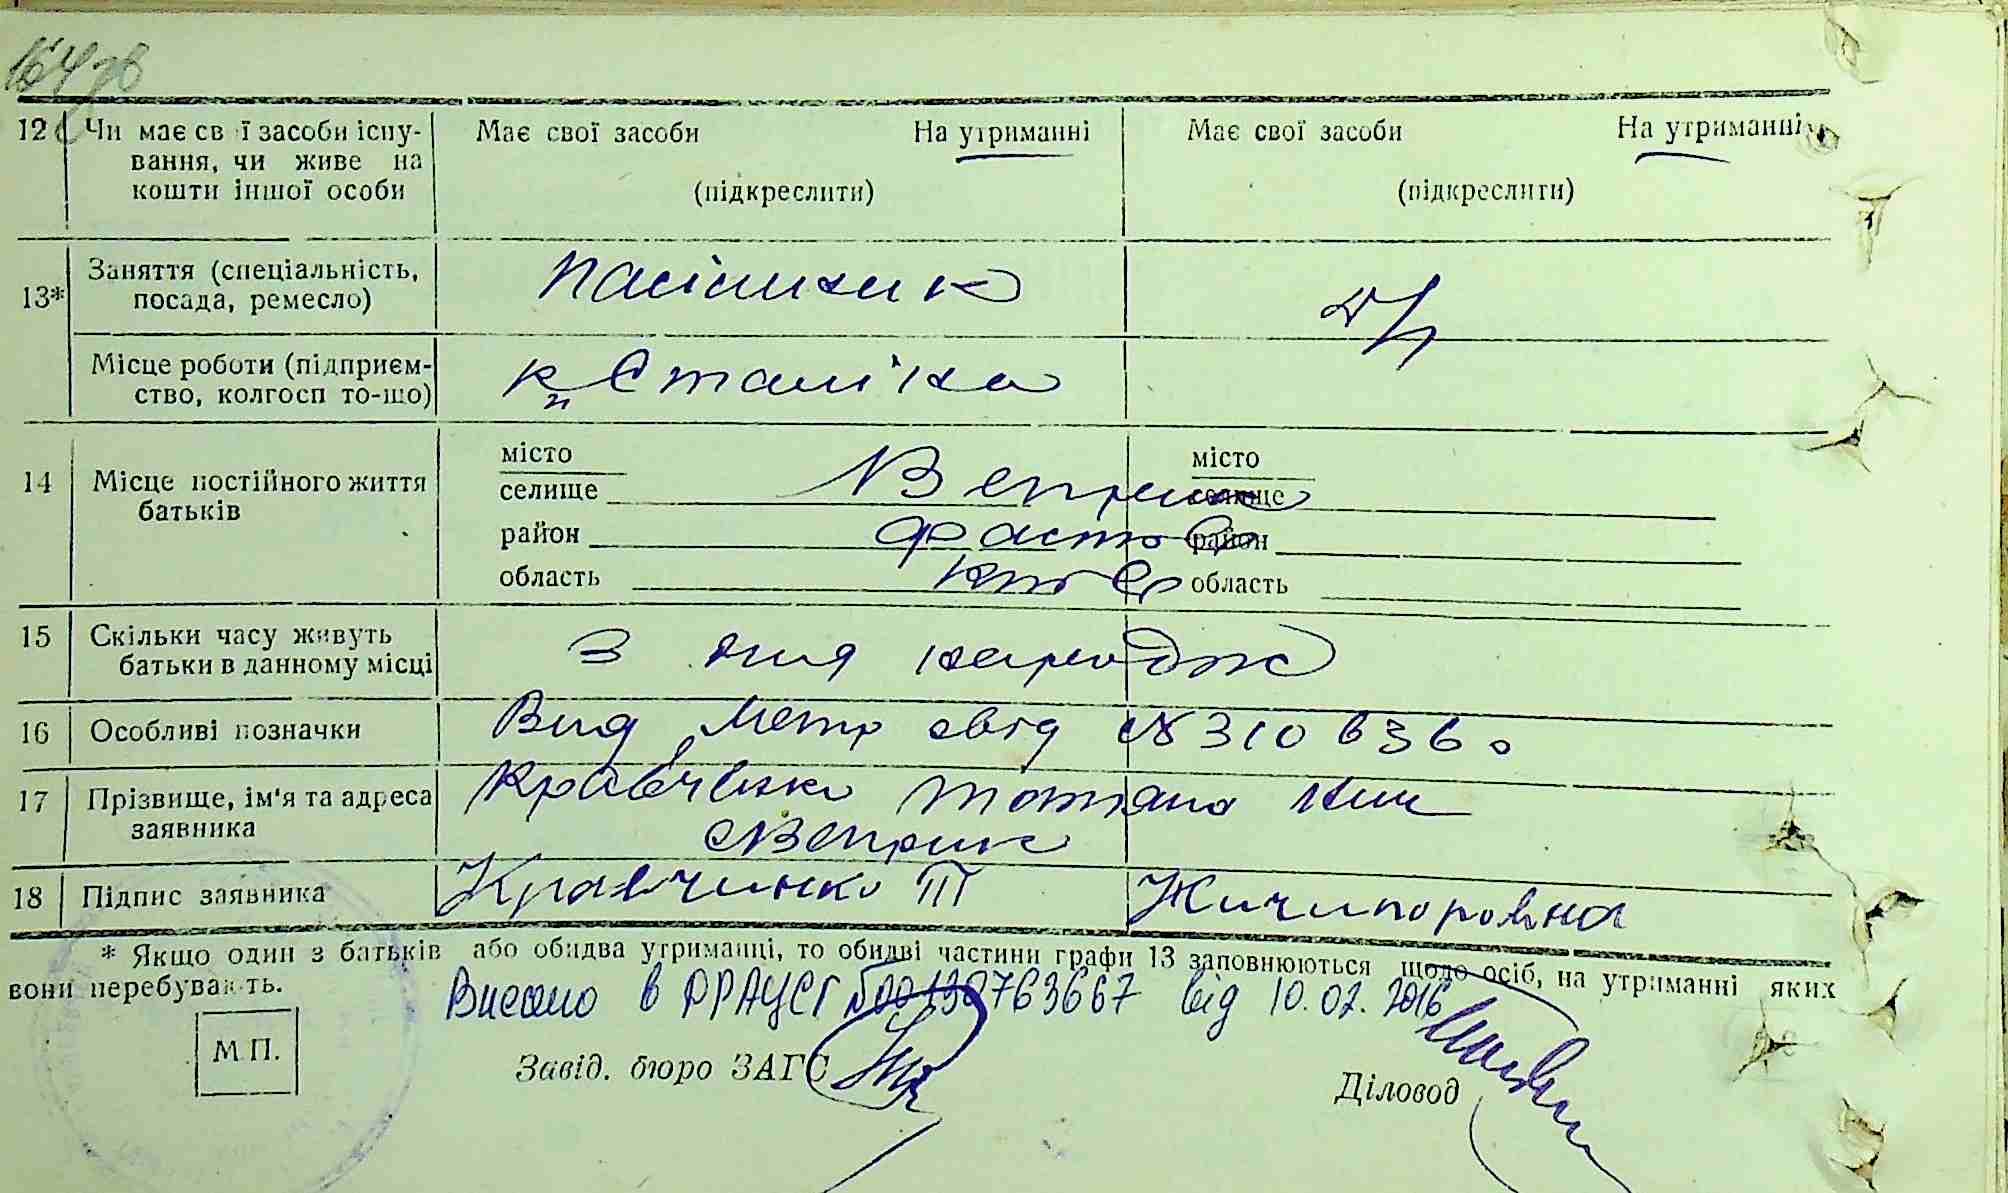 12 Чи має св ї засоби існу- Має свої засоби На утриманні Має свої засоби На утриманні
вання, чи живе на
кошти іншої особи (підкреслити) (підкреслити)
13* Заняття (спеціальність, Пасішник
посада, ремесло)
Місце роботи (підприєм- к Сталіна
ство, колгосп то-що)
місто місто
14 Місце постійного життя селище Веприк селище
батьків
район Фастов район
область область
15 Скільки часу живуть З дня народж
батьки в данному місці
16 Особливі позначки Вид Метр свід № 310636
17 Прізвище, ім'я та адреса Кравченко Тотяна Нич
заявника Веприк
18 Підпис заявника Кравчинко Т Ничипоровна
* Якщо один з батьків або обидва утриманці, то обидві частини графи 13 заповнюються щодо осіб, на утриманні яких
вони перебувають.
Внесено в ДРАЦСГ 00138763667 від 10.02.2016
М П. Завід. бюро ЗАГС Діловод